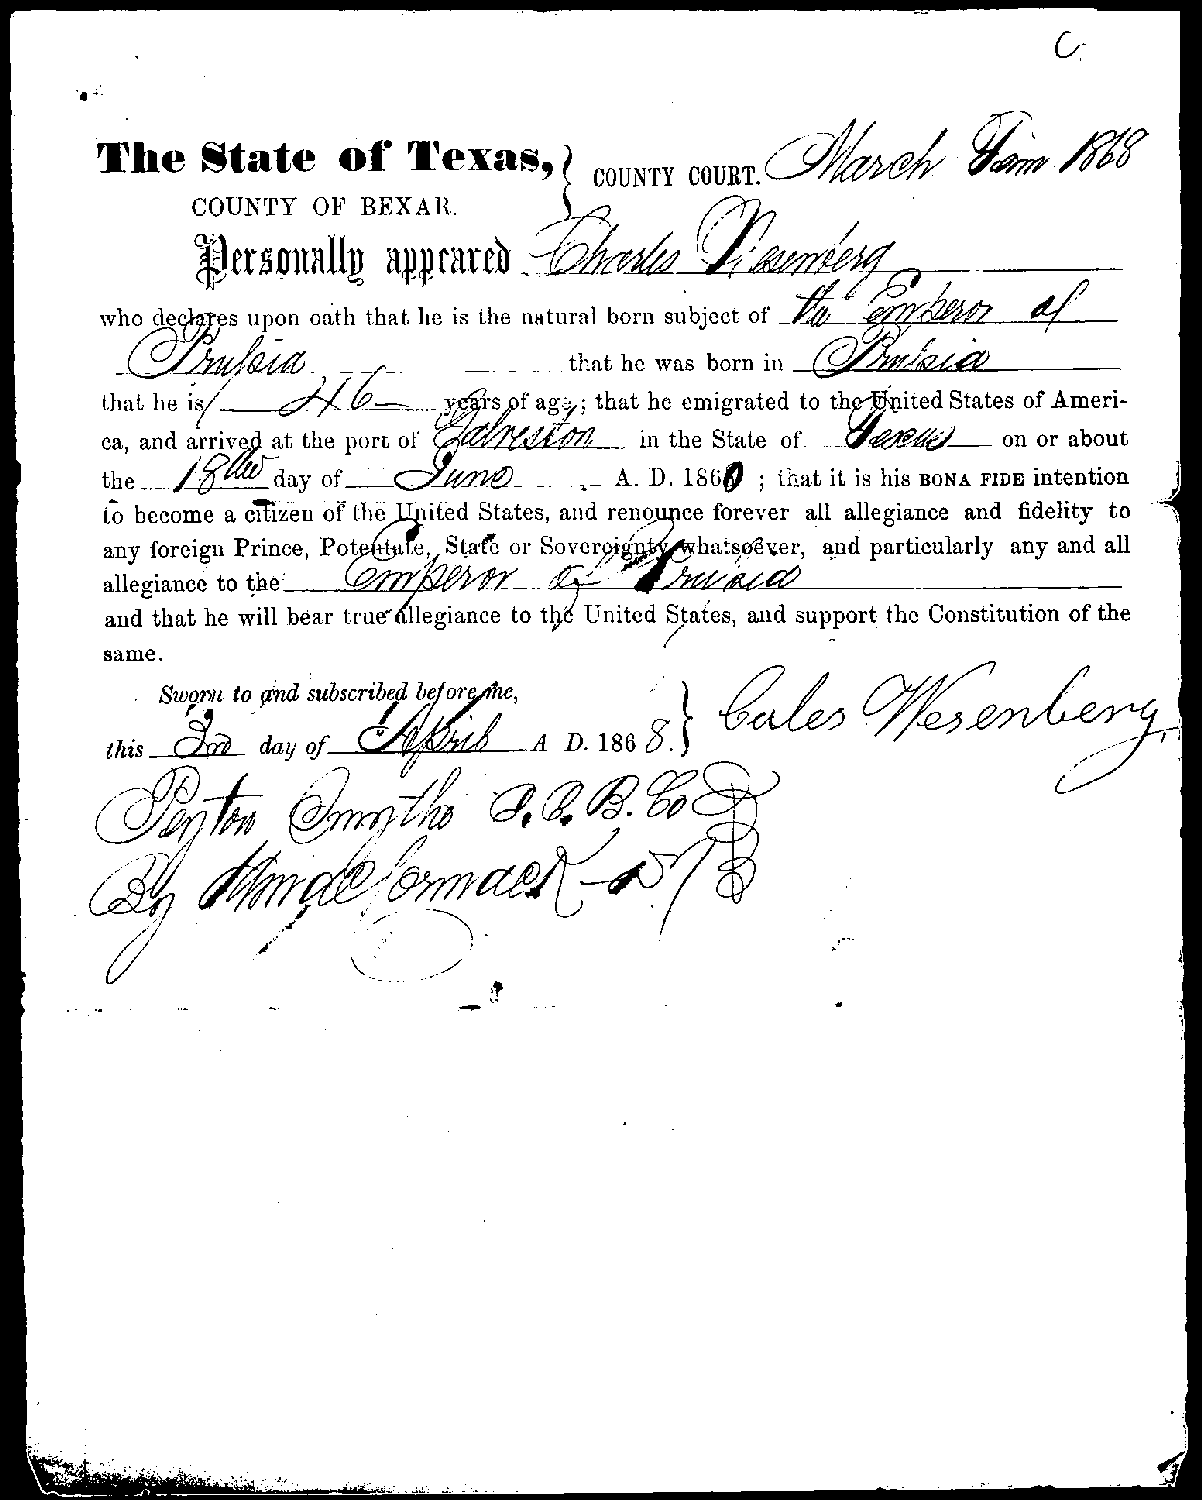 C.
The State of Texas, } COUNTY COURT. March Term 1868
COUNTY OF BEXAR.
Personally appeared Charles Wesenberg
who declares upon oath that he is the natural born subject of the Emperor of
Prussia that he was born in Prussia
that he is 46 years of age; that he emigrated to the United States of Ameri-
ca, and arrived at the port of Galveston in the State of Texas on or about
the 18 day of June A. D. 1860; that it is his BONA FIDE intention
to become a citizen of the United States, and renounce forever all allegiance and fidelity to
any foreign Prince, Potentate, State or Sovereignty whatsoever, and particularly any and all
allegiance to the Emperor of Prussia
and that he will bear true allegiance to the United States, and support the Constitution of the
same.
Sworn to and subscribed before me, } Carles Wesenberg
this 3rd day of April A D. 1868.
Peyton Smythe C. C. B. Co
By